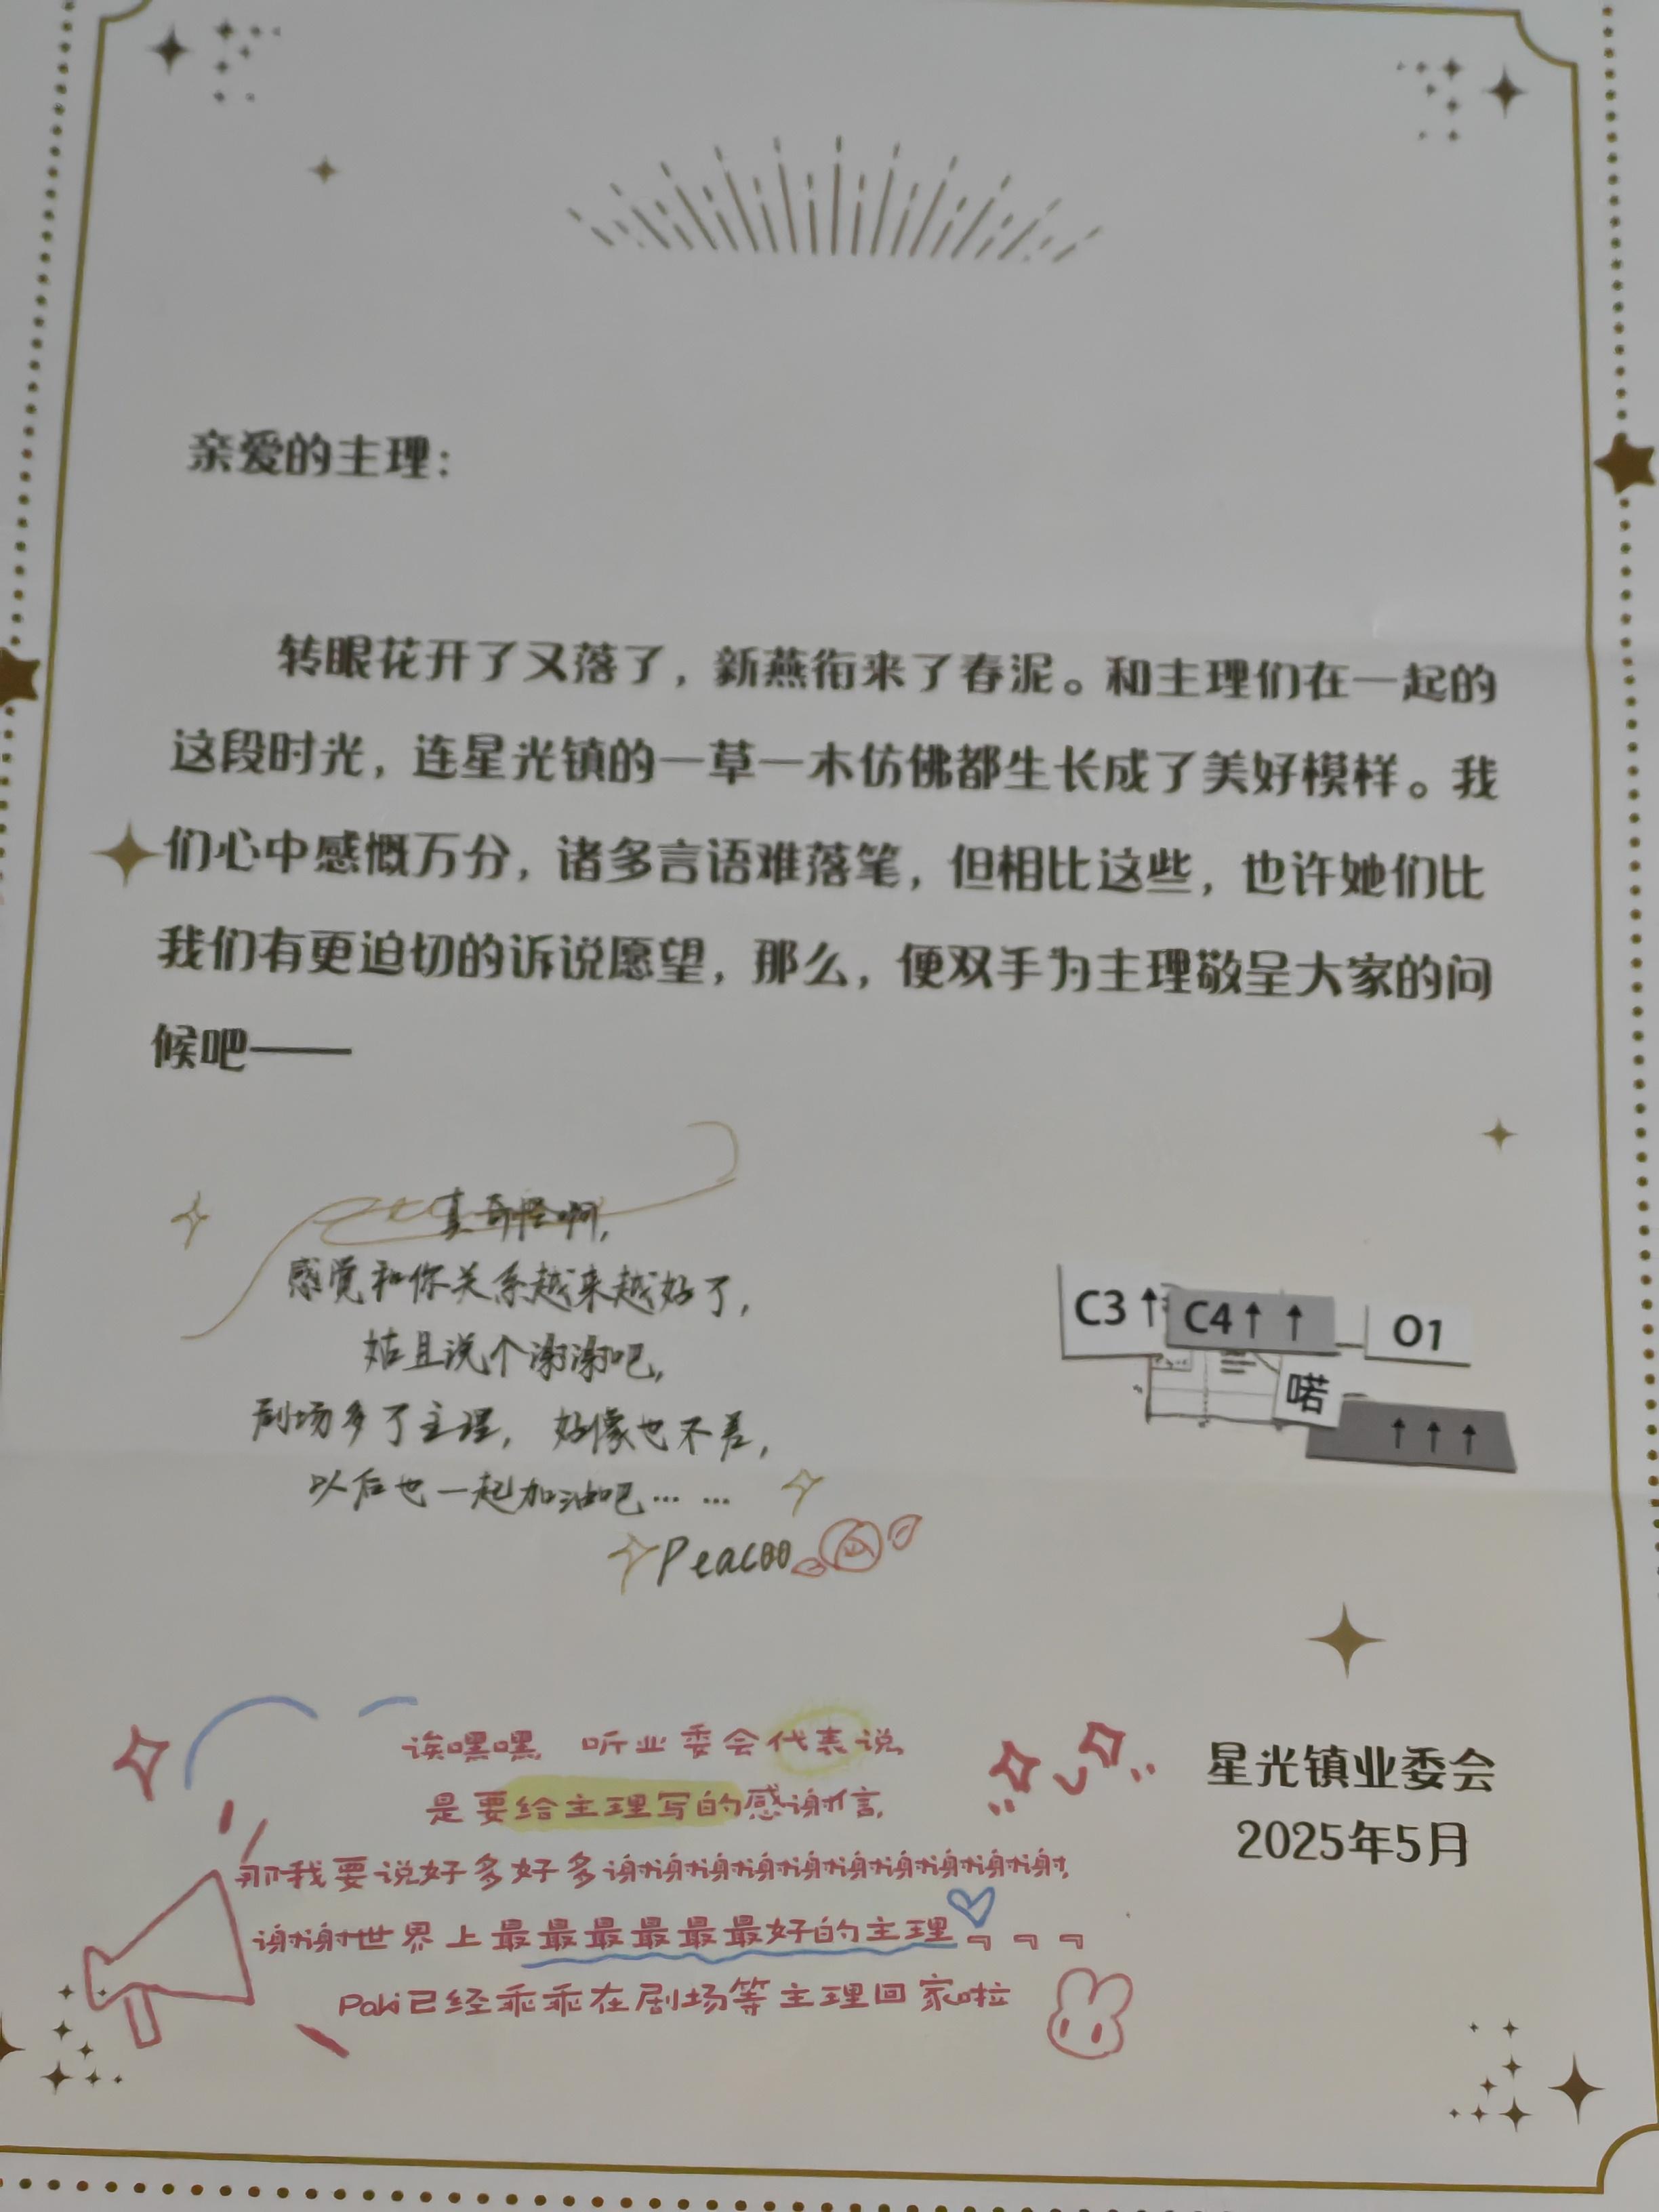 亲爱的主理：
转眼花开了又落了，新燕衔来了春泥。和主理们在一起的
这段时光，连星光镇的一草一木仿佛都生长成了美好模样。我
们心中感慨万分，诸多言语难落笔，但相比这些，也许她们比
我们有更迫切的诉说愿望，那么，便双手为主理敬呈大家的问
候吧——
真奇怪啊，
感觉和你关系越来越好了，
姑且说个谢谢吧，
剧场多了主理，好像也不差，
以后也一起加油吧……
Peacoo
C3↑ C4↑ ↑ O1
喏
↑ ↑ ↑
诶嘿嘿，听业委会代表说
是要给主理写的感谢信，
那我要说好多好多谢谢谢谢谢谢谢谢谢谢
谢谢世界上最最最最最最好的主理
Paki已经乖乖在剧场等主理回家啦
星光镇业委会
2025年5月